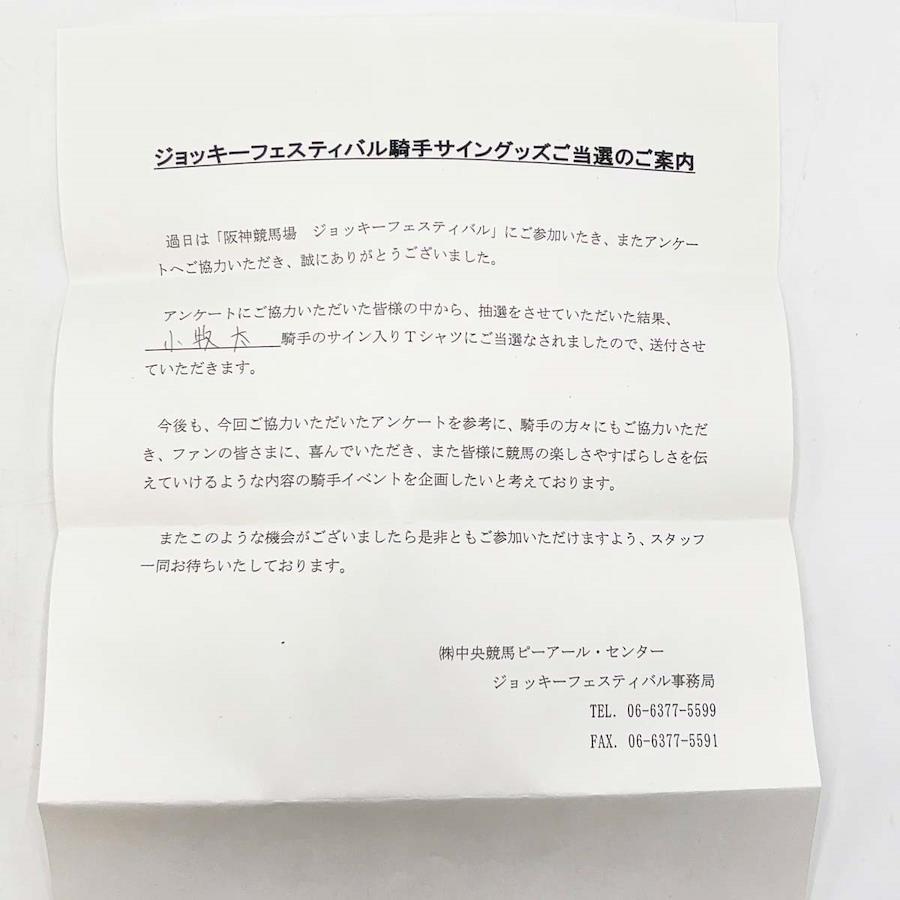 ジョッキーフェスティバル騎手サイングッズご当選のご案内
過日は「阪神競馬場　ジョッキーフェスティバル」にご参加いたき、またアンケー
トへご協力いただき、誠にありがとうございました。
アンケートにご協力いただいた皆様の中から、抽選をさせていただいた結果、
小牧太 騎手のサイン入りＴシャツにご当選なされましたので、送付させ
ていただきます。
今後も、今回ご協力いただいたアンケートを参考に、騎手の方々にもご協力いただ
き、ファンの皆さまに、喜んでいただき、また皆様に競馬の楽しさやすばらしさを伝
えていけるような内容の騎手イベントを企画したいと考えております。
またこのような機会がございましたら是非ともご参加いただけますよう、スタッフ
一同お待ちいたしております。
㈱中央競馬ピーアール・センター
ジョッキーフェスティバル事務局
TEL. 06-6377-5599
FAX. 06-6377-5591